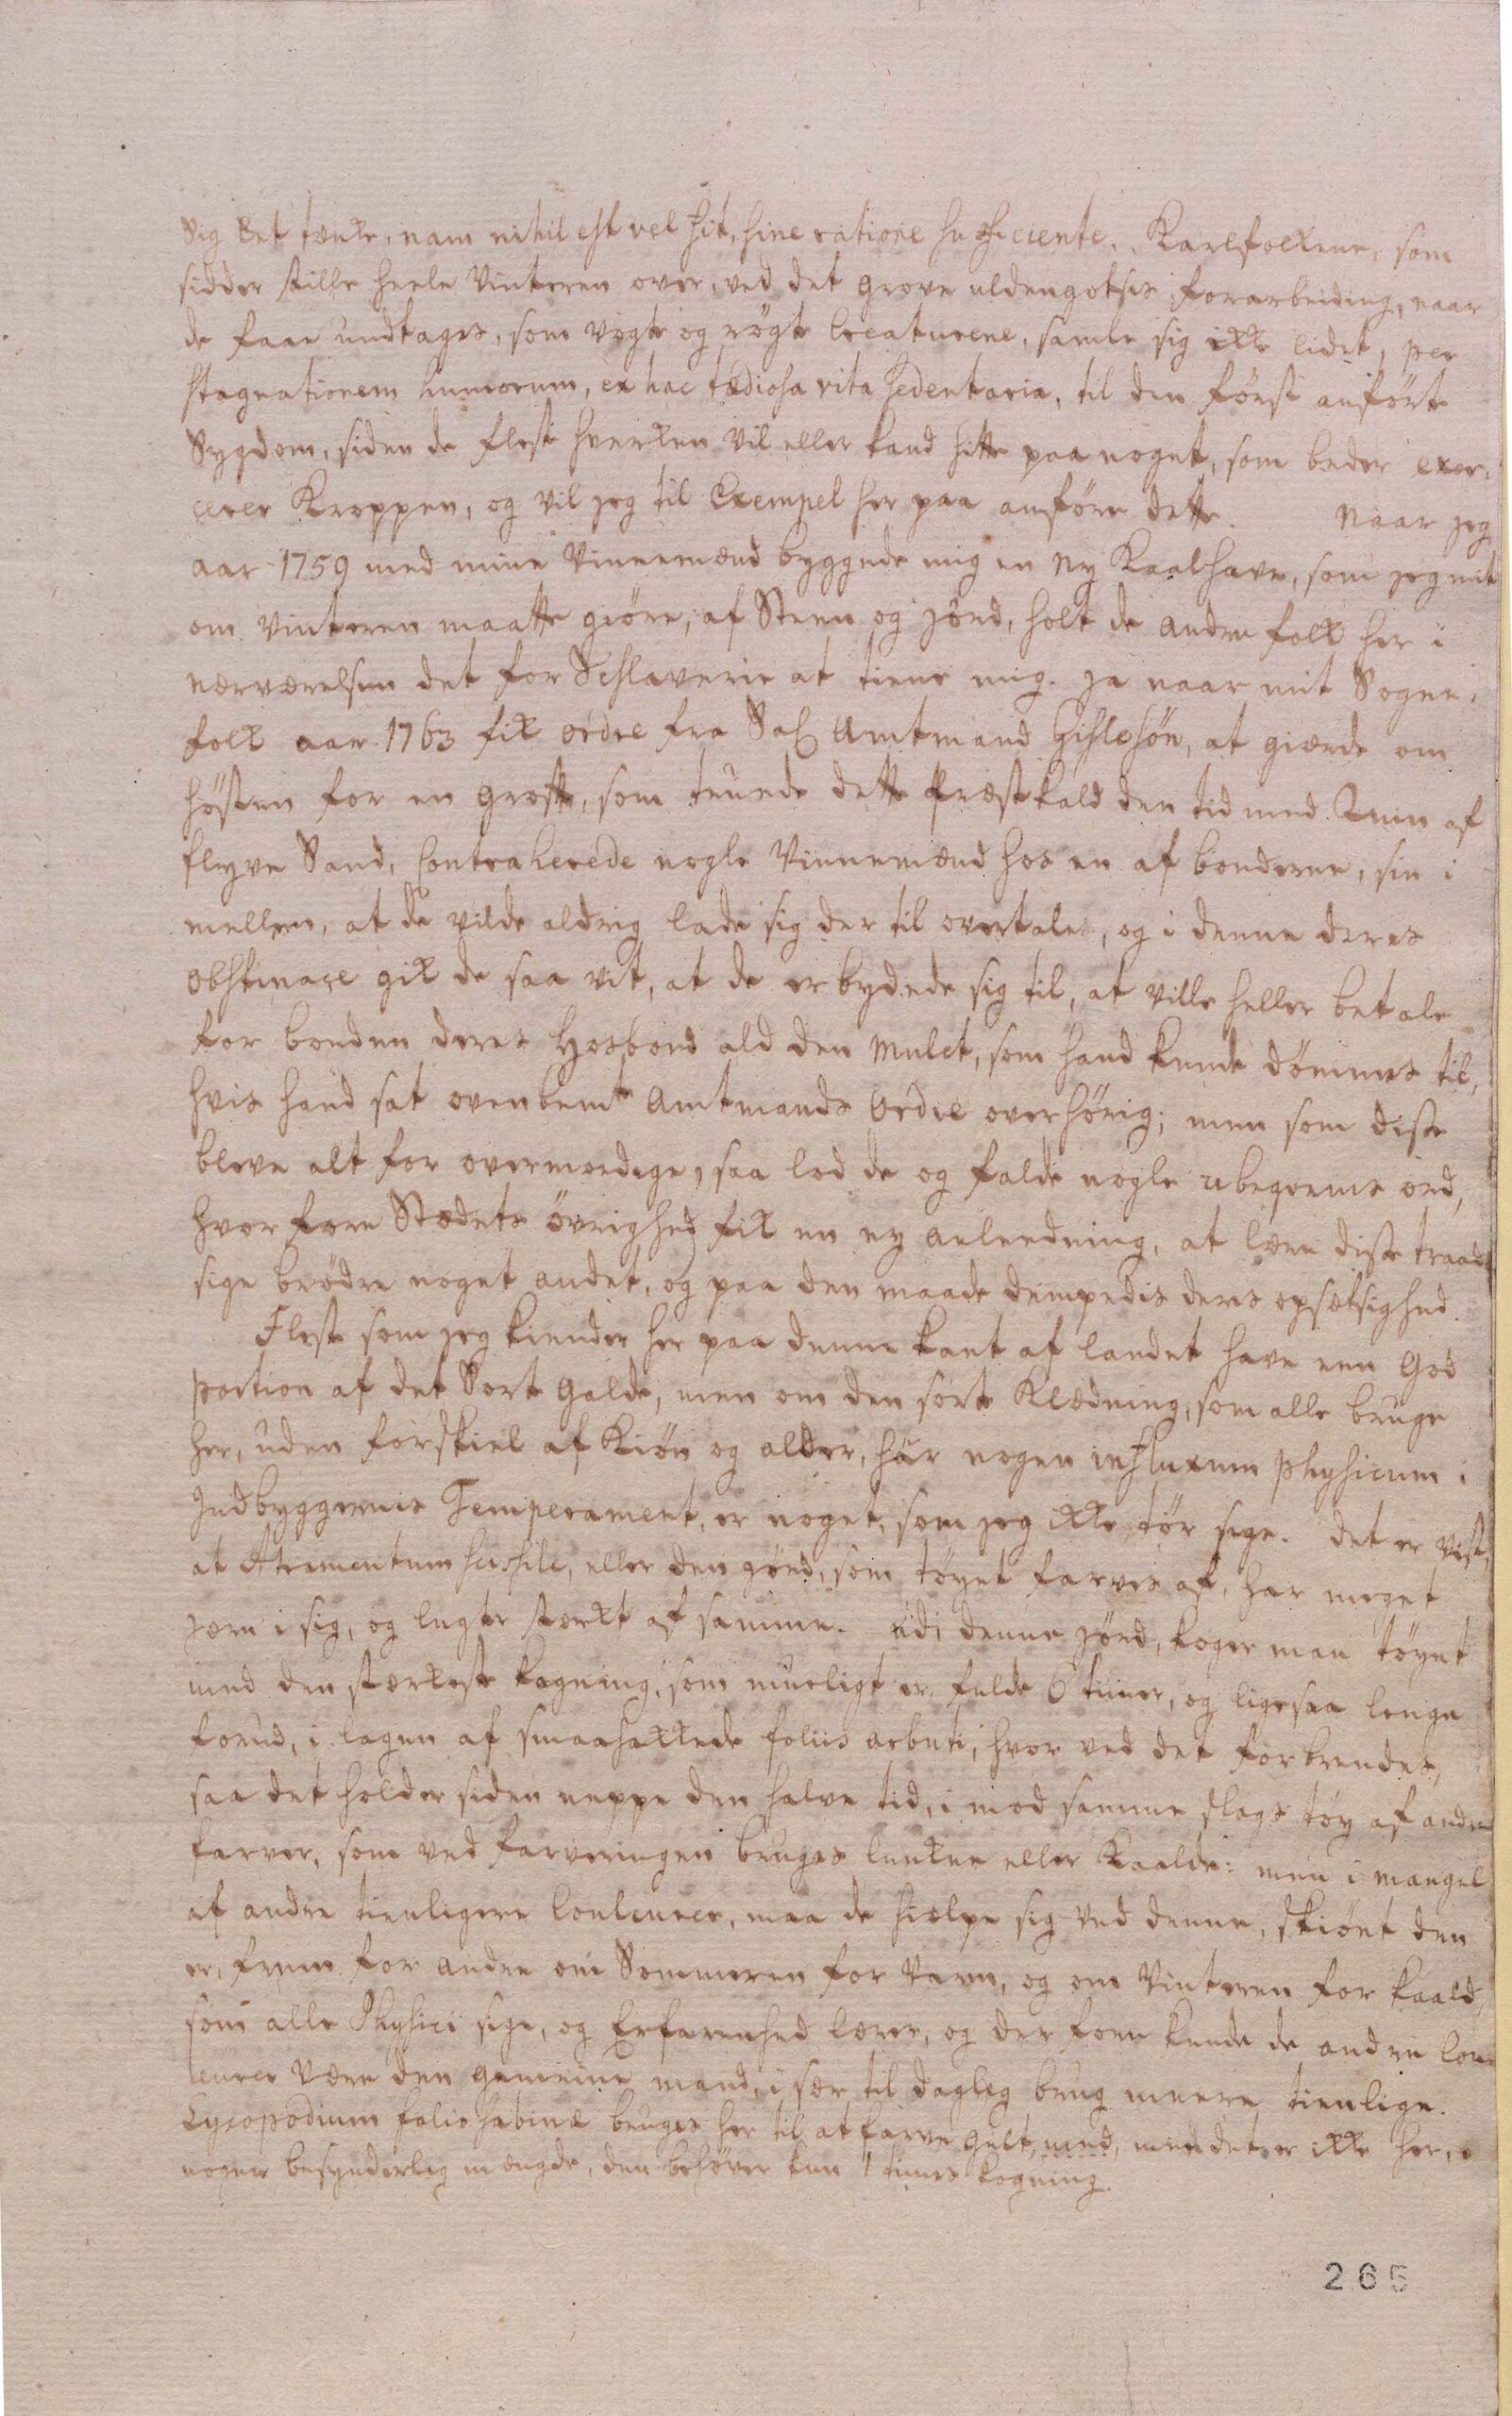 Sig Ret tænke, nam nihil est vel fit, sine ratione sufficiente. Karlfolkene, som
sidder stille heele Vinteren over, ved det grove uldengotses forarbeiding, naar
de faae undtages, som vogte og rögte Creaturene, samle sig ikke lidet, per
stagnationem humorum, ex hac tædiosa vita sedentaria, til den först anförte
Sygdom, siden de fleste hverken vil eller kand hitte paa noget, som beder exer-
cerer Kroppen, og vil jeg til Exempel her paa anföre dette. Naar jeg
aar 1759 med mine Vinnemænd byggede mig en ny Kaalhave, som jeg mit
om Vinteren maatte giöre, af Steen og jord, holt de andre folk her i
nærværelsen det for Schlaverie at tiene mig. ja naar mit Sogne-
folk aar 1763 fik ordre fra Sal. Amtmand Gislesön, at giærde om
hösten for en groft, som truede dette Præstekald den tid med Ruin af
flyve Sand, Contraherede nogle Vinnemænd hos en af bönderne, sin i
mellem, at de vilde aldrig lade sig der til overtale, og i denne deres
obstinace gik de saa vit, at de erbydede sig til, at ville heller betale
for bonden deres Hosbond ald den mulct, som hand kunde dömmes til,
hvis hand sat ovenbemte Amtmands Ordre overhörig; men som disse
bleve alt for overmodige, saa lod de og falde nogle ubeqvemme ord,
hvor fore Stædets övrighed fik en ny anleedning, at lære disse traad-
sige brödre noget andet, og paa den maade dempedis deres opsætsighed.
Fleste som jeg kiender her paa denne kant af landet have een God
portion af det Sorte Galde, men om den sorte Klædning, som alle bruge
her, uden forskiel af Kiön og alder, har nogen influxum physicum i
Indbyggernis Temperament, er noget, som jeg ikke tör sige. det er vist,
at Atramentum fussile, eller den jord, som töyet farves af, har meget
jærn i sig, og lugter stærkt af samme. udi denne jord, koger man töyet
med den stærkeste kogning, som mueligt er fulde 6 timer, og ligesaa lenge
forud, i lagen af smaahakkede foliis arbuti, hvor ved det forbrendes,
saa det holder siden neppe den halve tid, i mod samme slags töy af andre
farver, som ved farveringen bruges lunkne eller Kaalde: men i mangel
af andre tienligere Couleurer, maa de hielpe sig ved denne, skiönt den
er, frem for andre om Sommeren for Varm, og om Vinteren for kaald,
som alle Physici sige, og Erfarenhed lærer, og der fore kunde de andre Cou-
leurer være den gemeine mand, i sær til daglig brug meere tienlige.
Lycopodium folio sabinæ bruges her til at farve Gult med, men det er ikke her, i
nogen besynderlig mængde, den behöver kun 1 times kogning.
265